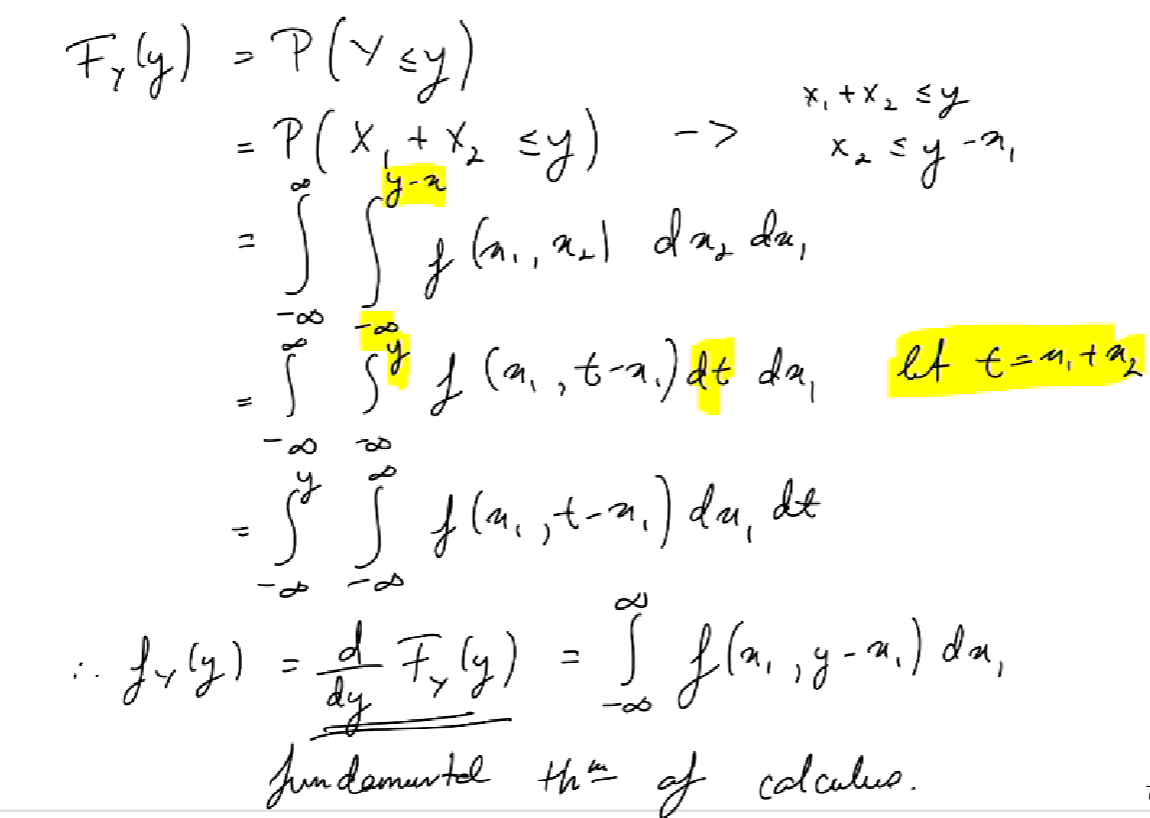 F_Y(y) = P(Y ≤ y)
= P(X₁ + X₂ ≤ y) -> x₁ + x₂ ≤ y
x₂ ≤ y - x₁
= ∫_{-∞}^{∞} ∫_{-∞}^{y-x} f(x₁, x₂) dx₂ dx₁
= ∫_{-∞}^{∞} ∫_{-∞}^{y} f(x₁, t-x₁) dt dx₁ let t = x₁ + x₂
= ∫_{-∞}^{y} ∫_{-∞}^{∞} f(x₁, t-x₁) dx₁ dt
∴ f_Y(y) = d/dy F_Y(y) = ∫_{-∞}^{∞} f(x₁, y-x₁) dx₁
fundamental thᵐ of calculus.